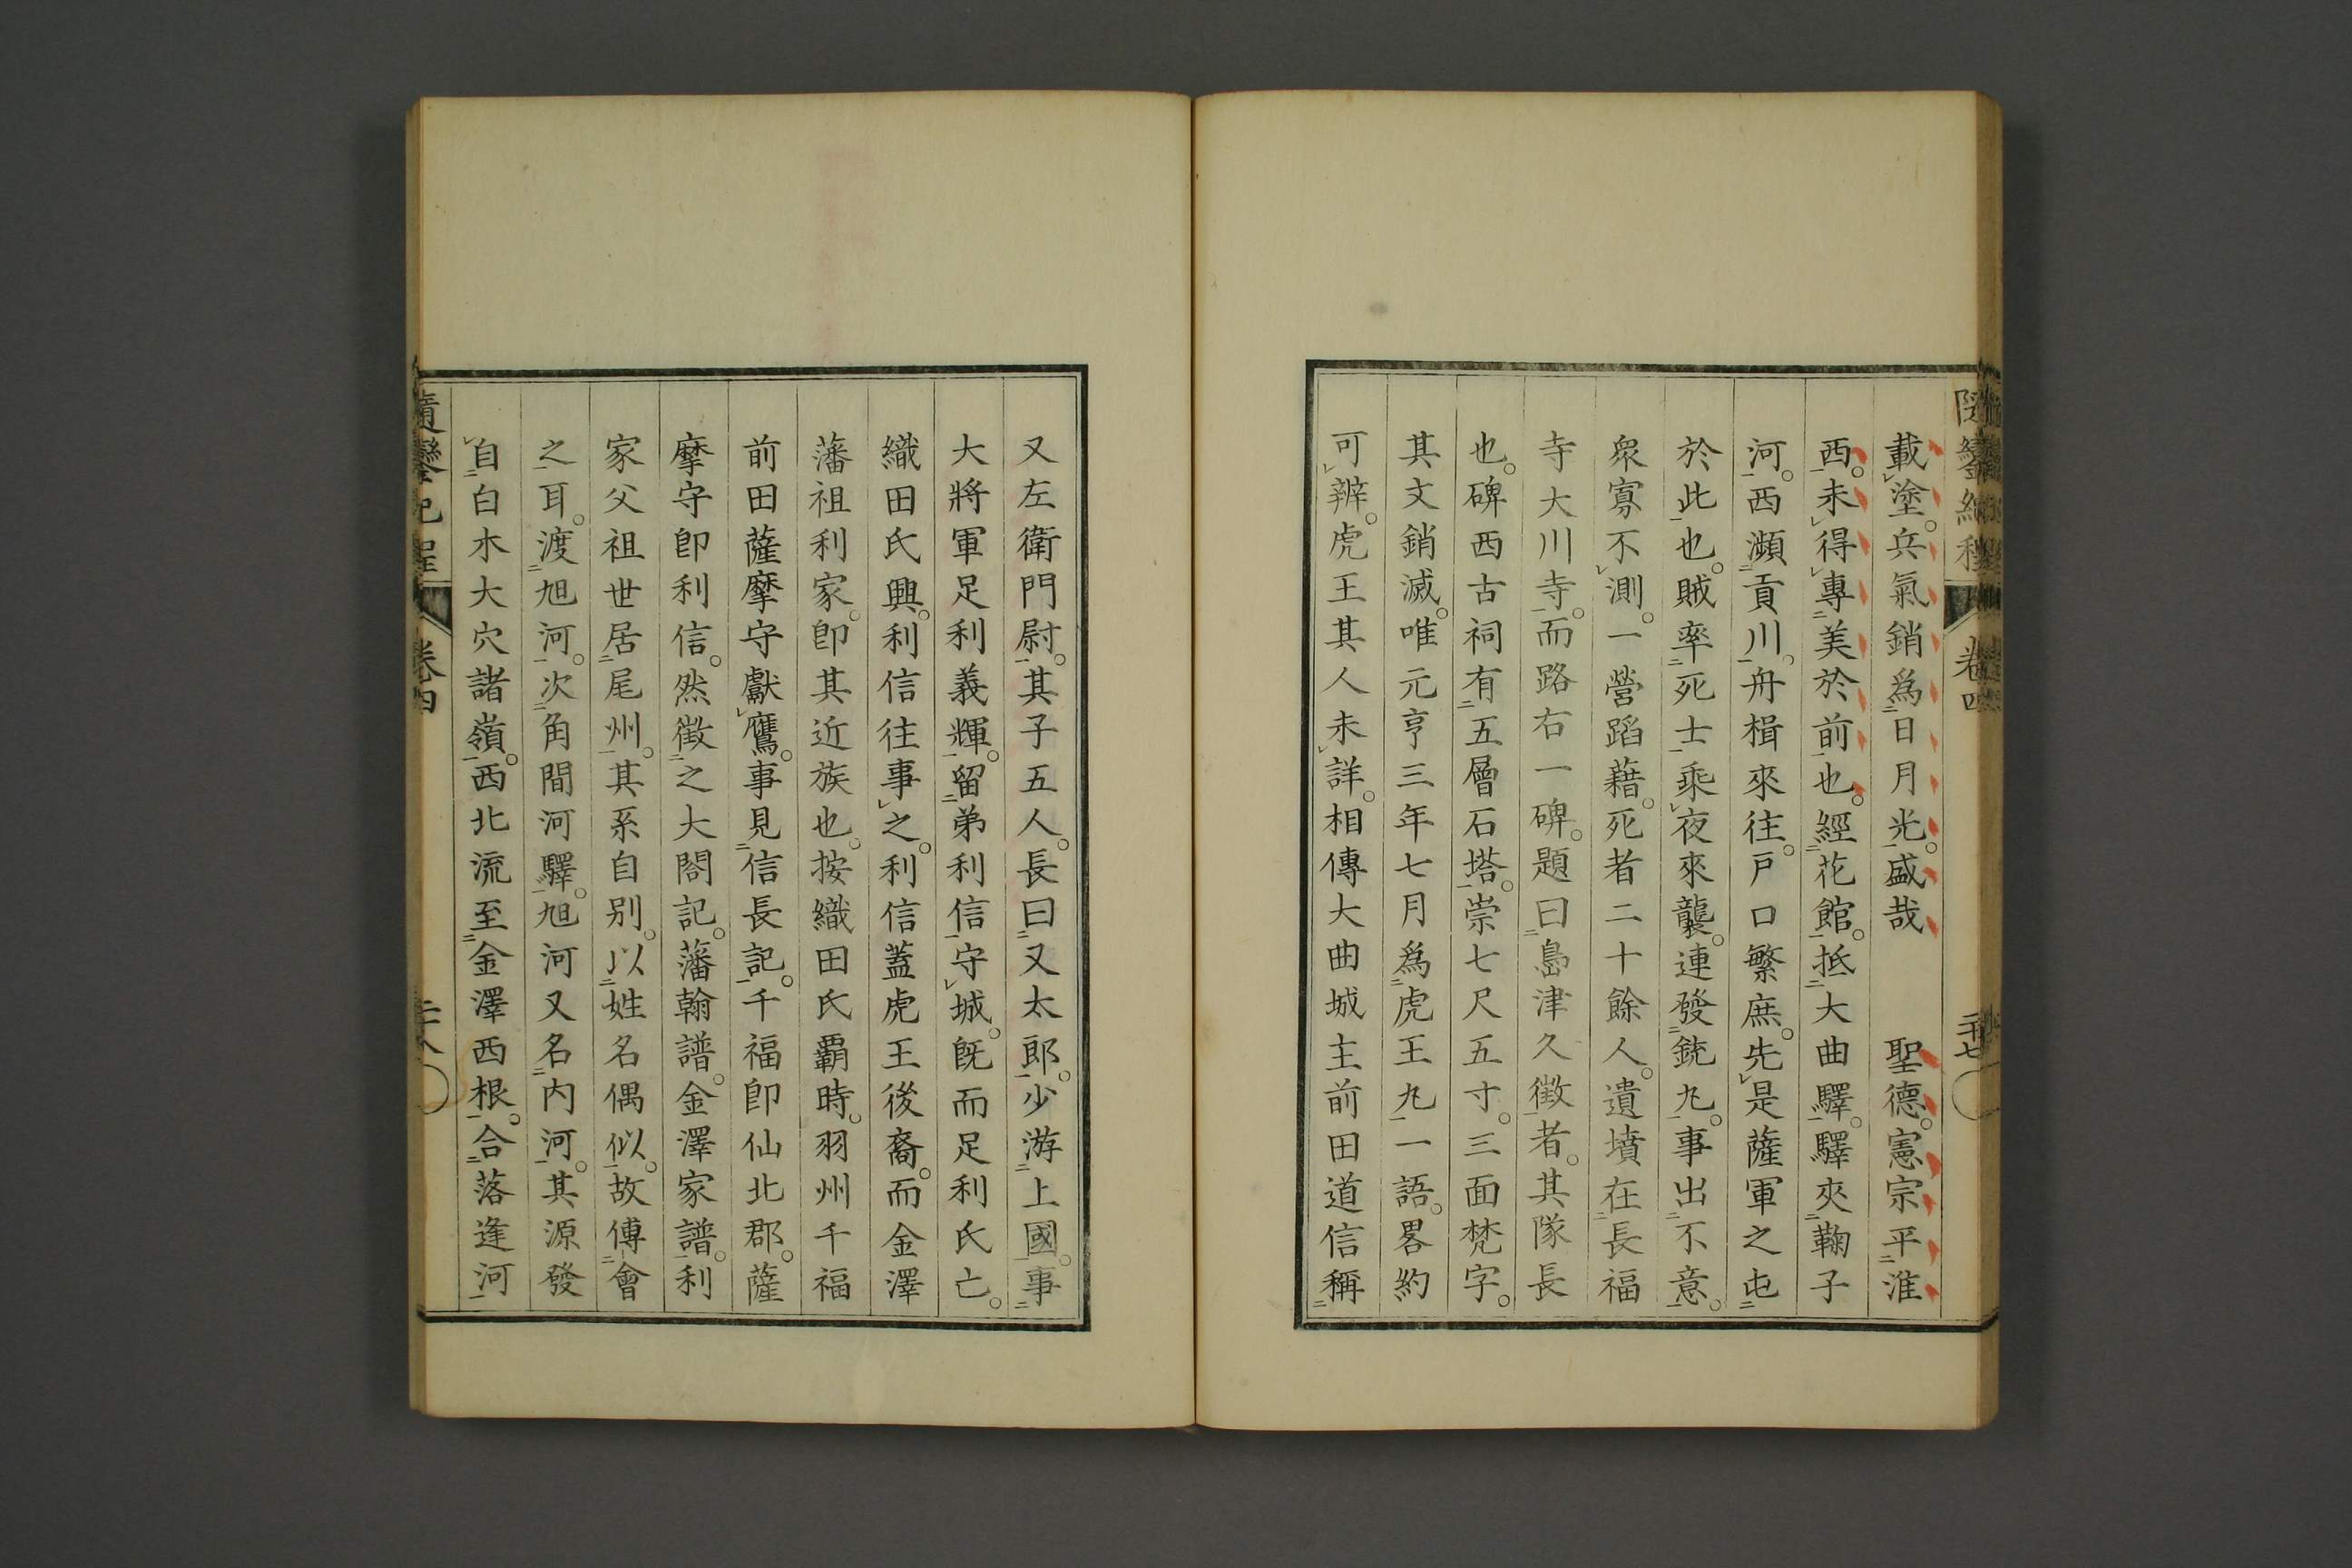 載塗。兵氣銷爲日月光。盛哉　　聖德。憲宗平淮
西。未得專美於前也。經花館。抵大曲驛。驛夾鞠子
河。西瀕貢川。舟楫來往。戸口繁庶。先是薩軍之屯
於此也。賊率死士乘夜來襲。連發銃丸。事出不意。
衆寡不測。一營蹈藉。死者二十餘人。遺墳在長福
寺大川寺。而路右一碑。題曰島津久徵者。其隊長
也。碑西古祠有五層石塔。崇七尺五寸。三面梵字。
其文銷滅。唯元亨三年七月爲虎王丸一語。畧約
可辨。虎王其人未詳。相傳大曲城主前田道信稱
又左衛門尉。其子五人。長曰又太郎。少游上國。事
大將軍足利義輝。留弟利信守城。旣而足利氏亡。
織田氏興。利信往事之。利信蓋虎王後裔。而金澤
藩祖利家。卽其近族也。按織田氏覇時。羽州千福
前田薩摩守獻鷹。事見信長記。千福卽仙北郡。薩
摩守卽利信。然徵之大閤記。藩翰譜。金澤家譜。利
家父祖世居尾州。其系自别。以姓名偶似。故傅會
之耳。渡旭河。次角間河驛。旭河又名内河。其源發
自白木大穴諸嶺。西北流至金澤西根。合落逢河
卷四
二十七